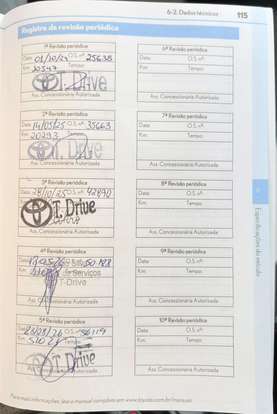 6-2. Dados técnicos 115
Registro de revisão periódica
1ª Revisão periódica
Data: 01/10/24 O.S. nº: 25638
Km: Tempo:
T. Drive
Ass. Concessionária Autorizada
2ª Revisão periódica
Data: 14/05/25 O.S. nº: 35663
Km: 20293 Tempo:
T. Drive
Ass. Concessionária Autorizada
3ª Revisão periódica
Data: 28/10/25 O.S. nº: 42890
T. Drive
TOYOTA
Ass. Concessionária Autorizada
4ª Revisão periódica
Data: O.S. nº: 50188
Km: de Serviços
T-Drive
Ass. Concessionária Autorizada
5ª Revisão periódica
Data: O.S. nº: 56119
Km: Tempo:
T. Drive
Ass. Concessionária Autorizada
6ª Revisão periódica
Data: O.S. nº:
Km: Tempo:
Ass. Concessionária Autorizada
7ª Revisão periódica
Data: O.S. nº:
Km: Tempo:
Ass. Concessionária Autorizada
8ª Revisão periódica
Data: O.S. nº:
Km: Tempo:
Ass. Concessionária Autorizada
9ª Revisão periódica
Data: O.S. nº:
Km: Tempo:
Ass. Concessionária Autorizada
10ª Revisão periódica
Data: O.S. nº:
Km: Tempo:
Ass. Concessionária Autorizada
6
Especificações do veículo
Para mais informações, leia o manual completo em www.toyota.com.br/manuais